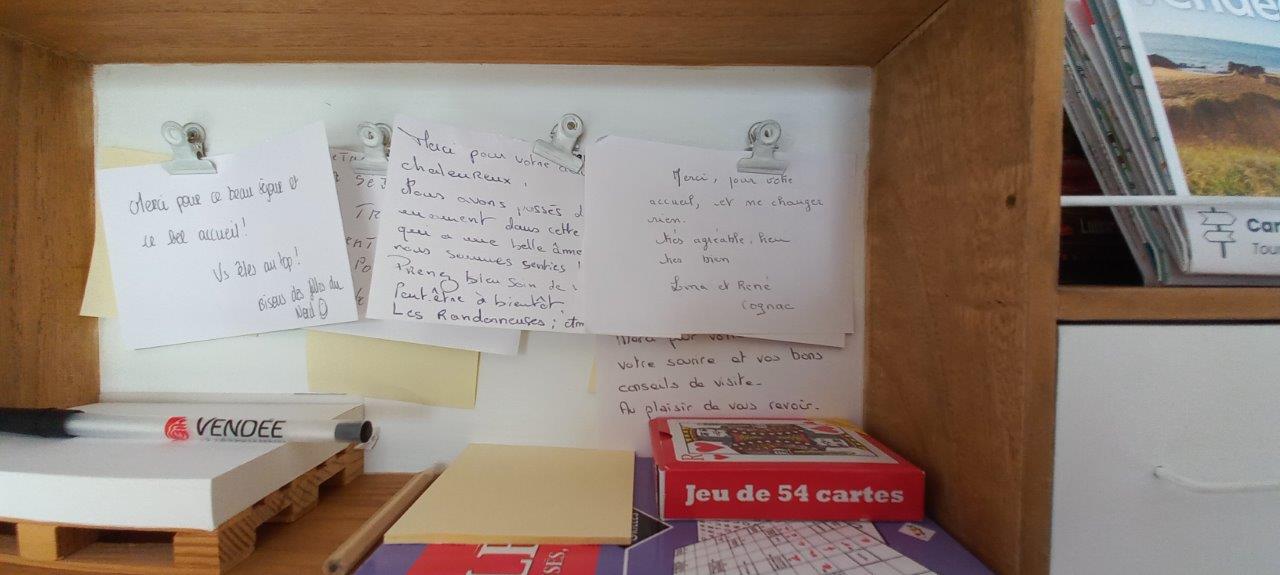 Merci pour ce beau séjour et
ce bel accueil!
Vs êtes au top!
Bisous des filles du
Nord
TR
Merci pour votre
chaleureux,
Nous avons passés
moment dans cette
qui a une belle âme
nous sommes senties
Prenez bien soin de
Peut-être à bientôt,
Les Randonneuses;
Merci, pour votre
accueil, et ne changer
rien.
très agréable, lieu
très bien
et René
Cognac
Merci pour
votre sourire et vos bons
conseils de visite-
Au plaisir de vous revoir.
VENDÉE
Jeu de 54 cartes
R
SES,
Car
Tour